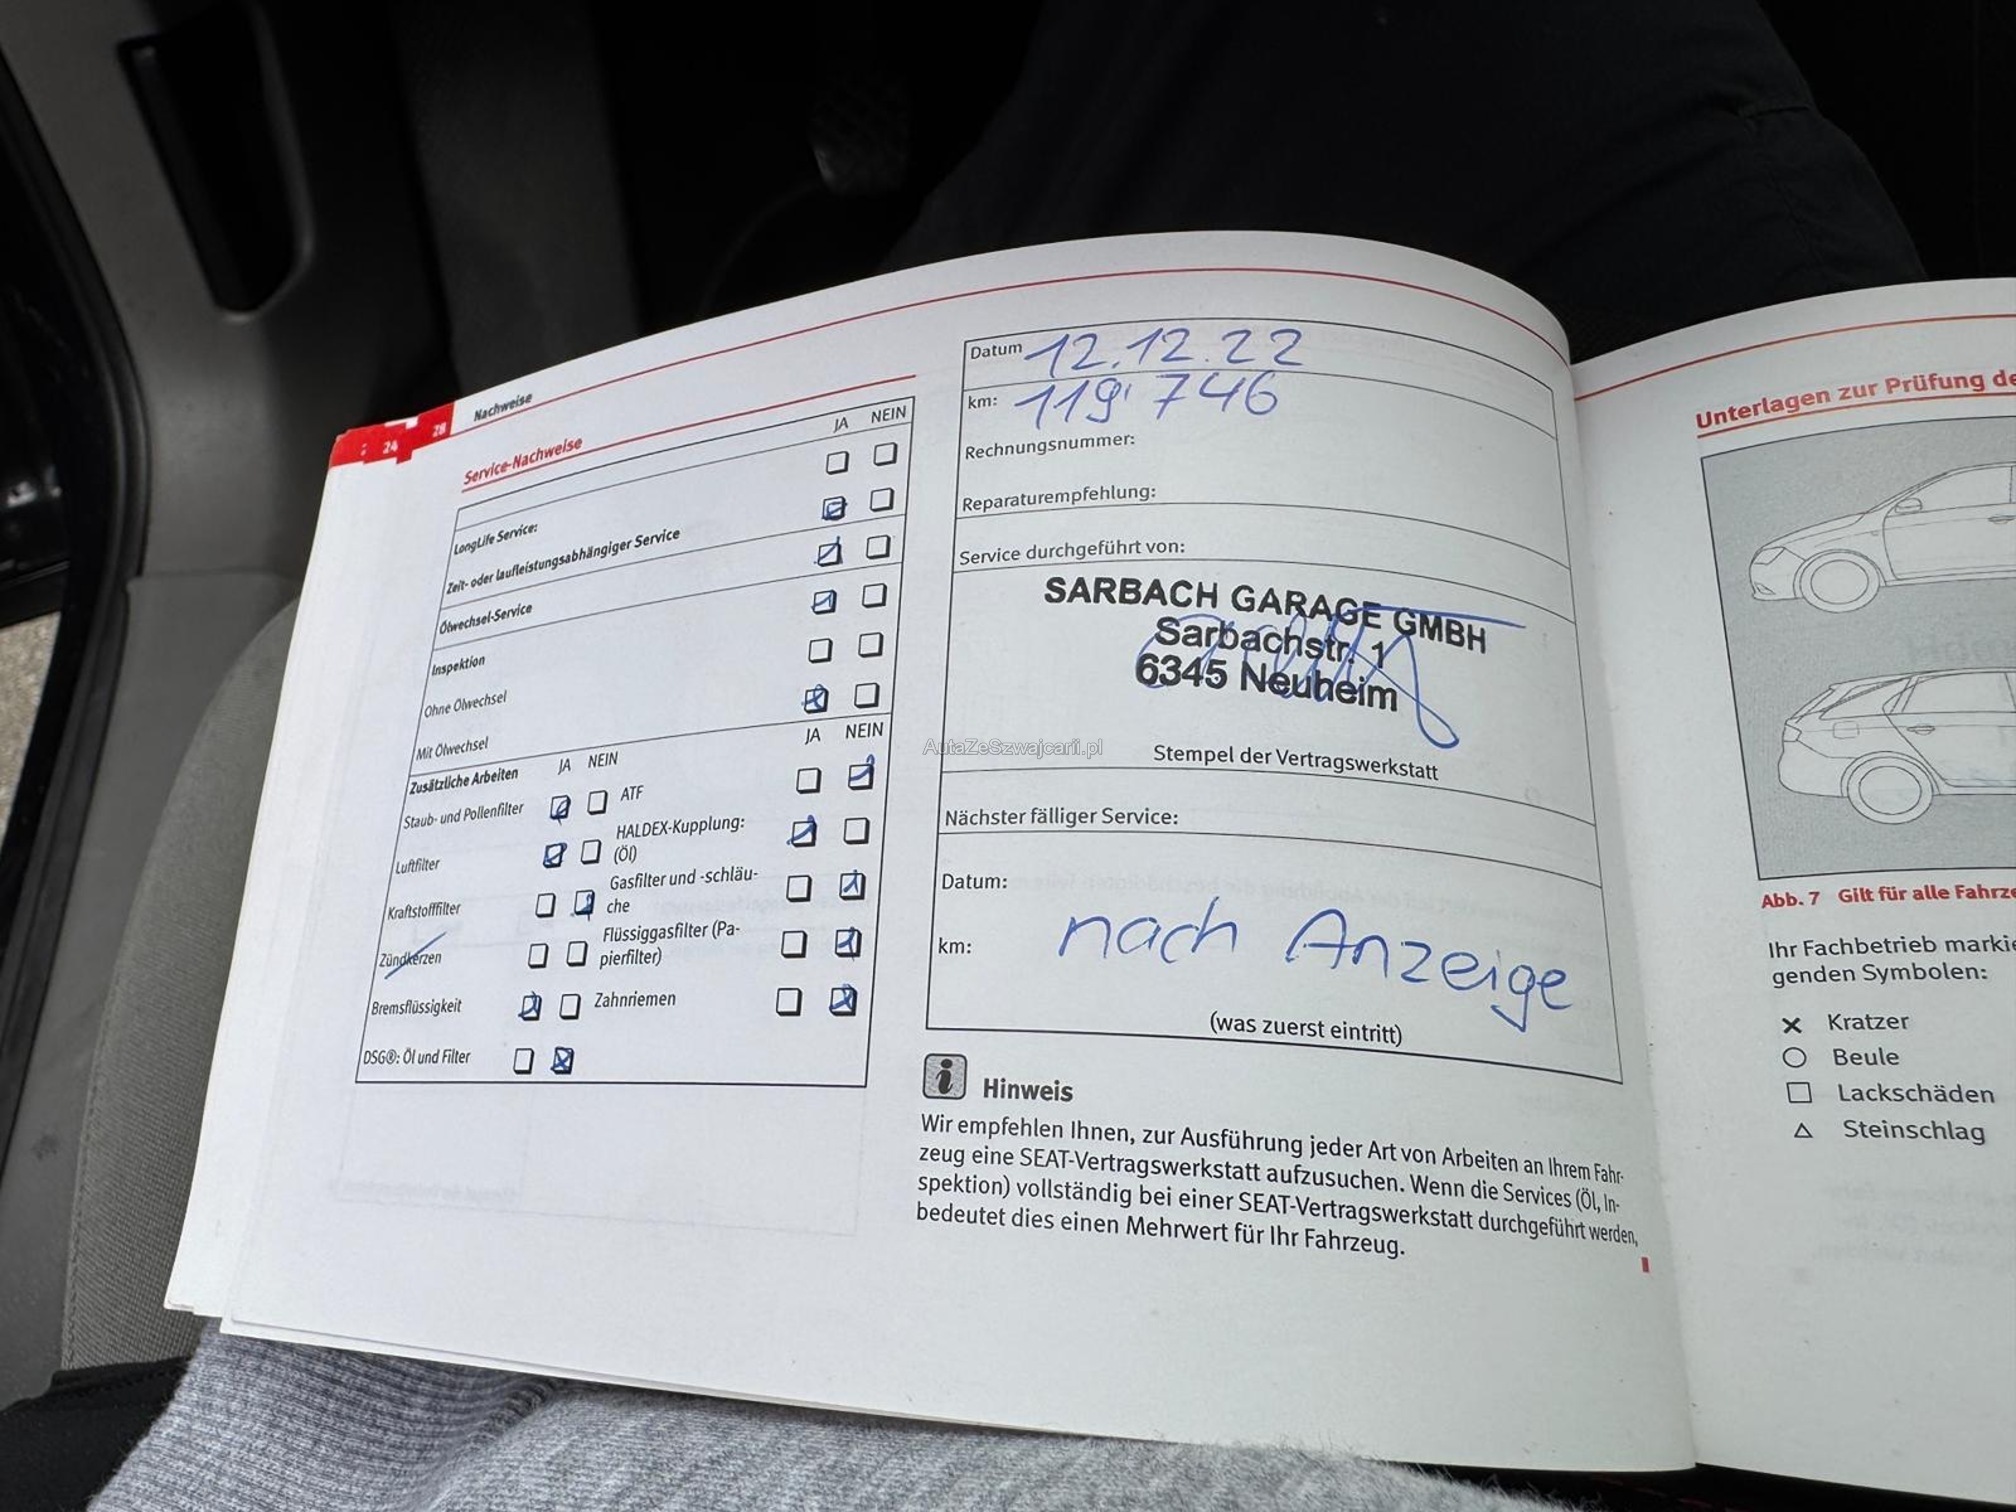 24
28
Nachweise
Service-Nachweise
JA NEIN
LongLife Service:
Zeit- oder laufleistungsabhängiger Service
Ölwechsel-Service
Inspektion
Ohne Ölwechsel
Mit Ölwechsel
JA NEIN
Zusätzliche Arbeiten JA NEIN
Staub- und Pollenfilter
ATF
Luftfilter
HALDEX-Kupplung:
(Öl)
Kraftstofffilter
Gasfilter und -schläu-
che
Zündkerzen
Flüssiggasfilter (Pa-
pierfilter)
Bremsflüssigkeit
Zahnriemen
DSG®: Öl und Filter
Datum 12.12.22
km: 119'746
Rechnungsnummer:
Reparaturempfehlung:
Service durchgeführt von:
SARBACH GARAGE GMBH
Sarbachstr. 1
6345 Neuheim
AutaZeSzwajcarii.pl
Stempel der Vertragswerkstatt
Nächster fälliger Service:
Datum:
km: nach Anzeige
(was zuerst eintritt)
i Hinweis
Wir empfehlen Ihnen, zur Ausführung jeder Art von Arbeiten an Ihrem Fahr-
zeug eine SEAT-Vertragswerkstatt aufzusuchen. Wenn die Services (Öl, In-
spektion) vollständig bei einer SEAT-Vertragswerkstatt durchgeführt werden,
bedeutet dies einen Mehrwert für Ihr Fahrzeug.
Unterlagen zur Prüfung de
Abb. 7 Gilt für alle Fahrze
Ihr Fachbetrieb markie
genden Symbolen:
Kratzer
Beule
Lackschäden
Steinschlag